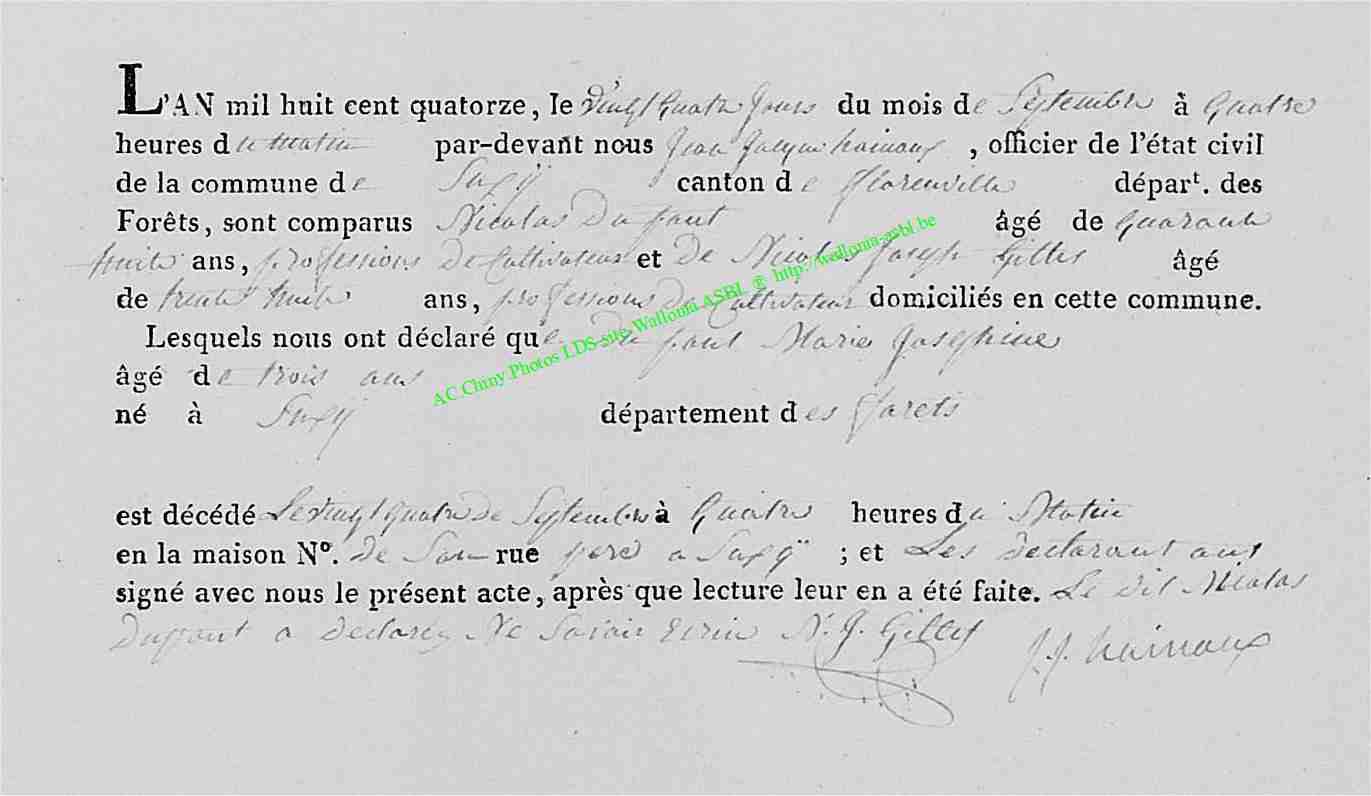 L'AN mil huit cent quatorze, le Vingt Quatre Jours du mois de Septembre à Quatre
heures du Matin par-devant nous Jean Jacque hainaux, officier de l'état civil
de la commune de Suxÿ canton de florenville départ. des
Forêts, sont comparus Nicolas Dupont âgé de quarante
huit ans, professions De Cultivateur et De Nicolas Joseph Gilles âgé
de trente huit ans, professions De Cultivateur domiciliés en cette commune.
Lesquels nous ont déclaré que Marie Josephine
âgé de trois ans
né à Suxÿ département des forets
est décédé Le vingt quatre De Septembre à Quatre heures du Matin
en la maison N°. De Son rue pere a Suxÿ ; et Les Declarant ont
signé avec nous le présent acte, après que lecture leur en a été faite. Le dit Nicolas
a Declarez Ne Savoir N. J. Gilles J. J. hainaux
AC Chiny Photos LDS-site Wallonia ASBL ® http://wallonia-asbl.be